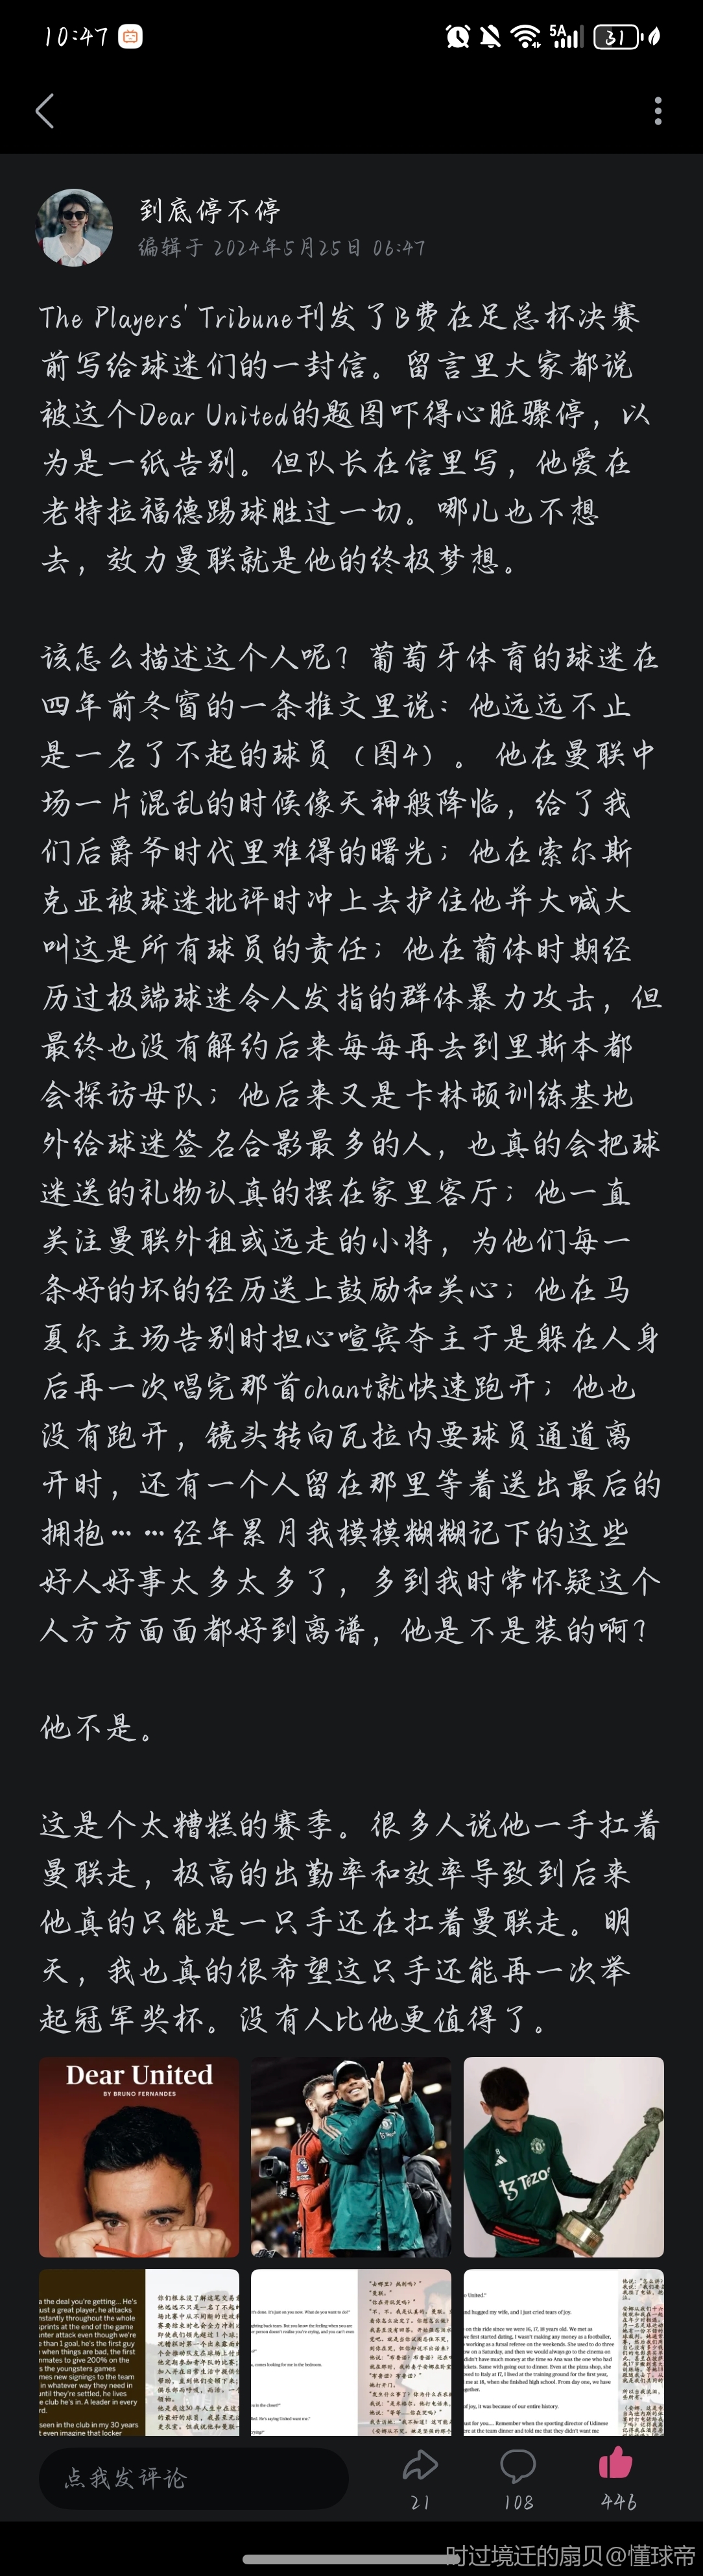 10:47
5A
31
到底停不停
编辑于 2024年5月25日 06:47
The Players' Tribune刊发了B费在足总杯决赛
前写给球迷们的一封信。留言里大家都说
被这个Dear United的题图吓得心脏骤停，以
为是一纸告别。但队长在信里写，他爱在
老特拉福德踢球胜过一切。哪儿也不想
去，效力曼联就是他的终极梦想。
该怎么描述这个人呢？葡萄牙体育的球迷在
四年前冬窗的一条推文里说：他远远不止
是一名了不起的球员（图4）。 他在曼联中
场一片混乱的时候像天神般降临，给了我
们后爵爷时代里难得的曙光；他在索尔斯
克亚被球迷批评时冲上去护住他并大喊大
叫这是所有球员的责任；他在葡体时期经
历过极端球迷令人发指的群体暴力攻击，但
最终也没有解约后来每每再去到里斯本都
会探访母队；他后来又是卡林顿训练基地
外给球迷签名合影最多的人，也真的会把球
迷送的礼物认真的摆在家里客厅；他一直
关注曼联外租或远走的小将，为他们每一
条好的坏的经历送上鼓励和关心；他在马
夏尔主场告别时担心喧宾夺主于是躲在人身
后再一次唱完那首chant就快速跑开；他也
没有跑开，镜头转向瓦拉内要球员通道离
开时，还有一个人留在那里等着送出最后的
拥抱……经年累月我模模糊糊记下的这些
好人好事太多太多了，多到我时常怀疑这个
人方方面面都好到离谱，他是不是装的啊？
他不是。
这是个太糟糕的赛季。很多人说他一手扛着
曼联走，极高的出勤率和效率导致到后来
他真的只能是一只手还在扛着曼联走。明
天，我也真的很希望这只手还能再一次举
起冠军奖杯。没有人比他更值得了。
Dear United
BY BRUNO FERNANDES
TEZOS
a the deal you're getting... He's
just a great player, he attacks
nstantly throughout the whole
sprints at the end of the game
unter attack even though we're
e than 1 goal, he's the first guy
when things are bad, the first
mates to give 200% on the
s the youngsters games
mes new signings to the team
in whatever way they need in
until they're settled, he lives
e club he's in. A leader in every
seen in the club in my 30 years
t even imagine that locker
点我发评论
21
108
446
时过境迁的扇贝@懂球帝